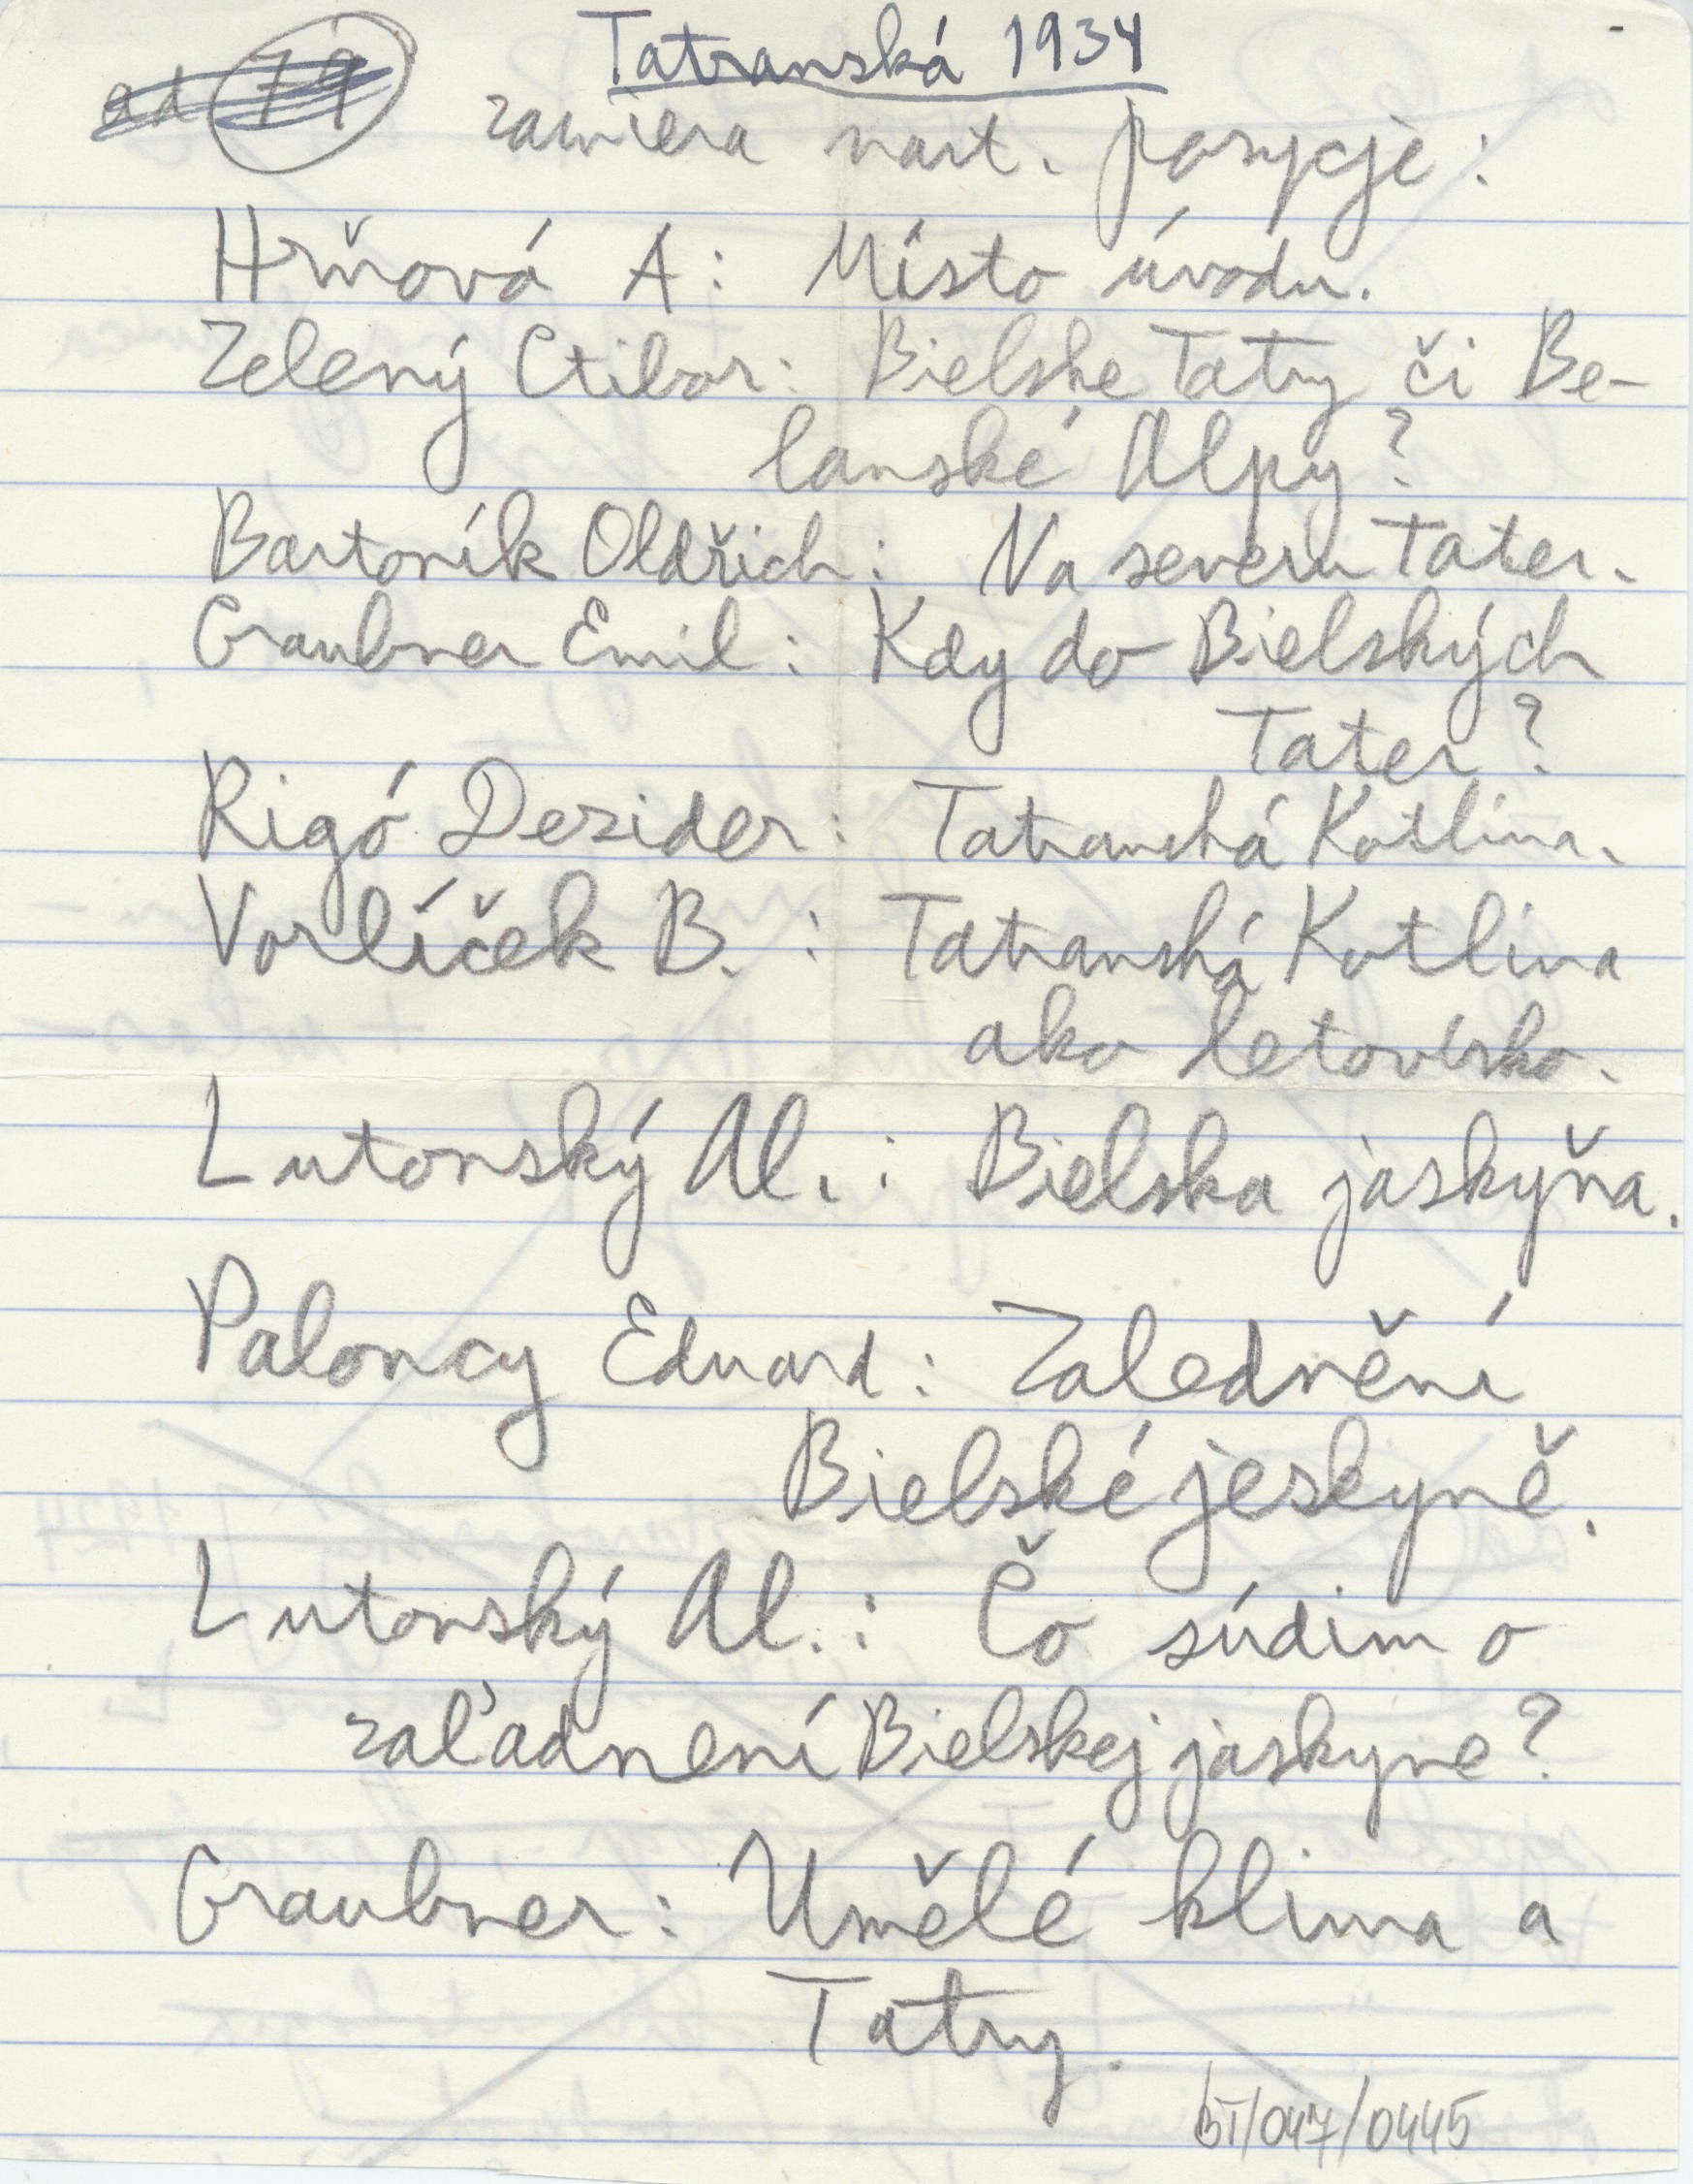 Tatranská 1934
ad 79 zawiera nast. pozycje:
Hrňová A: Místo úvodu.
Zelený Ctibor: Bielske Tatry či Be-
lanské Alpy?
Bartoník Oldřich: Na severu Tater.
Graubner Emil: Kdy do Bielských
Tater?
Rigó Dezider: Tatranská Kotlina.
Vorlíček B.: Tatranská Kotlina
ako letovisko.
Lutonský Al.: Bielska jaskyňa.
Paloncy Eduard: Zalednění
Bielské jeskyně.
Lutonský Al.: Čo súdim o
zaľadnení Bielskej jaskyne?
Graubner: Umělé klima a
Tatry.
BT/047/0445